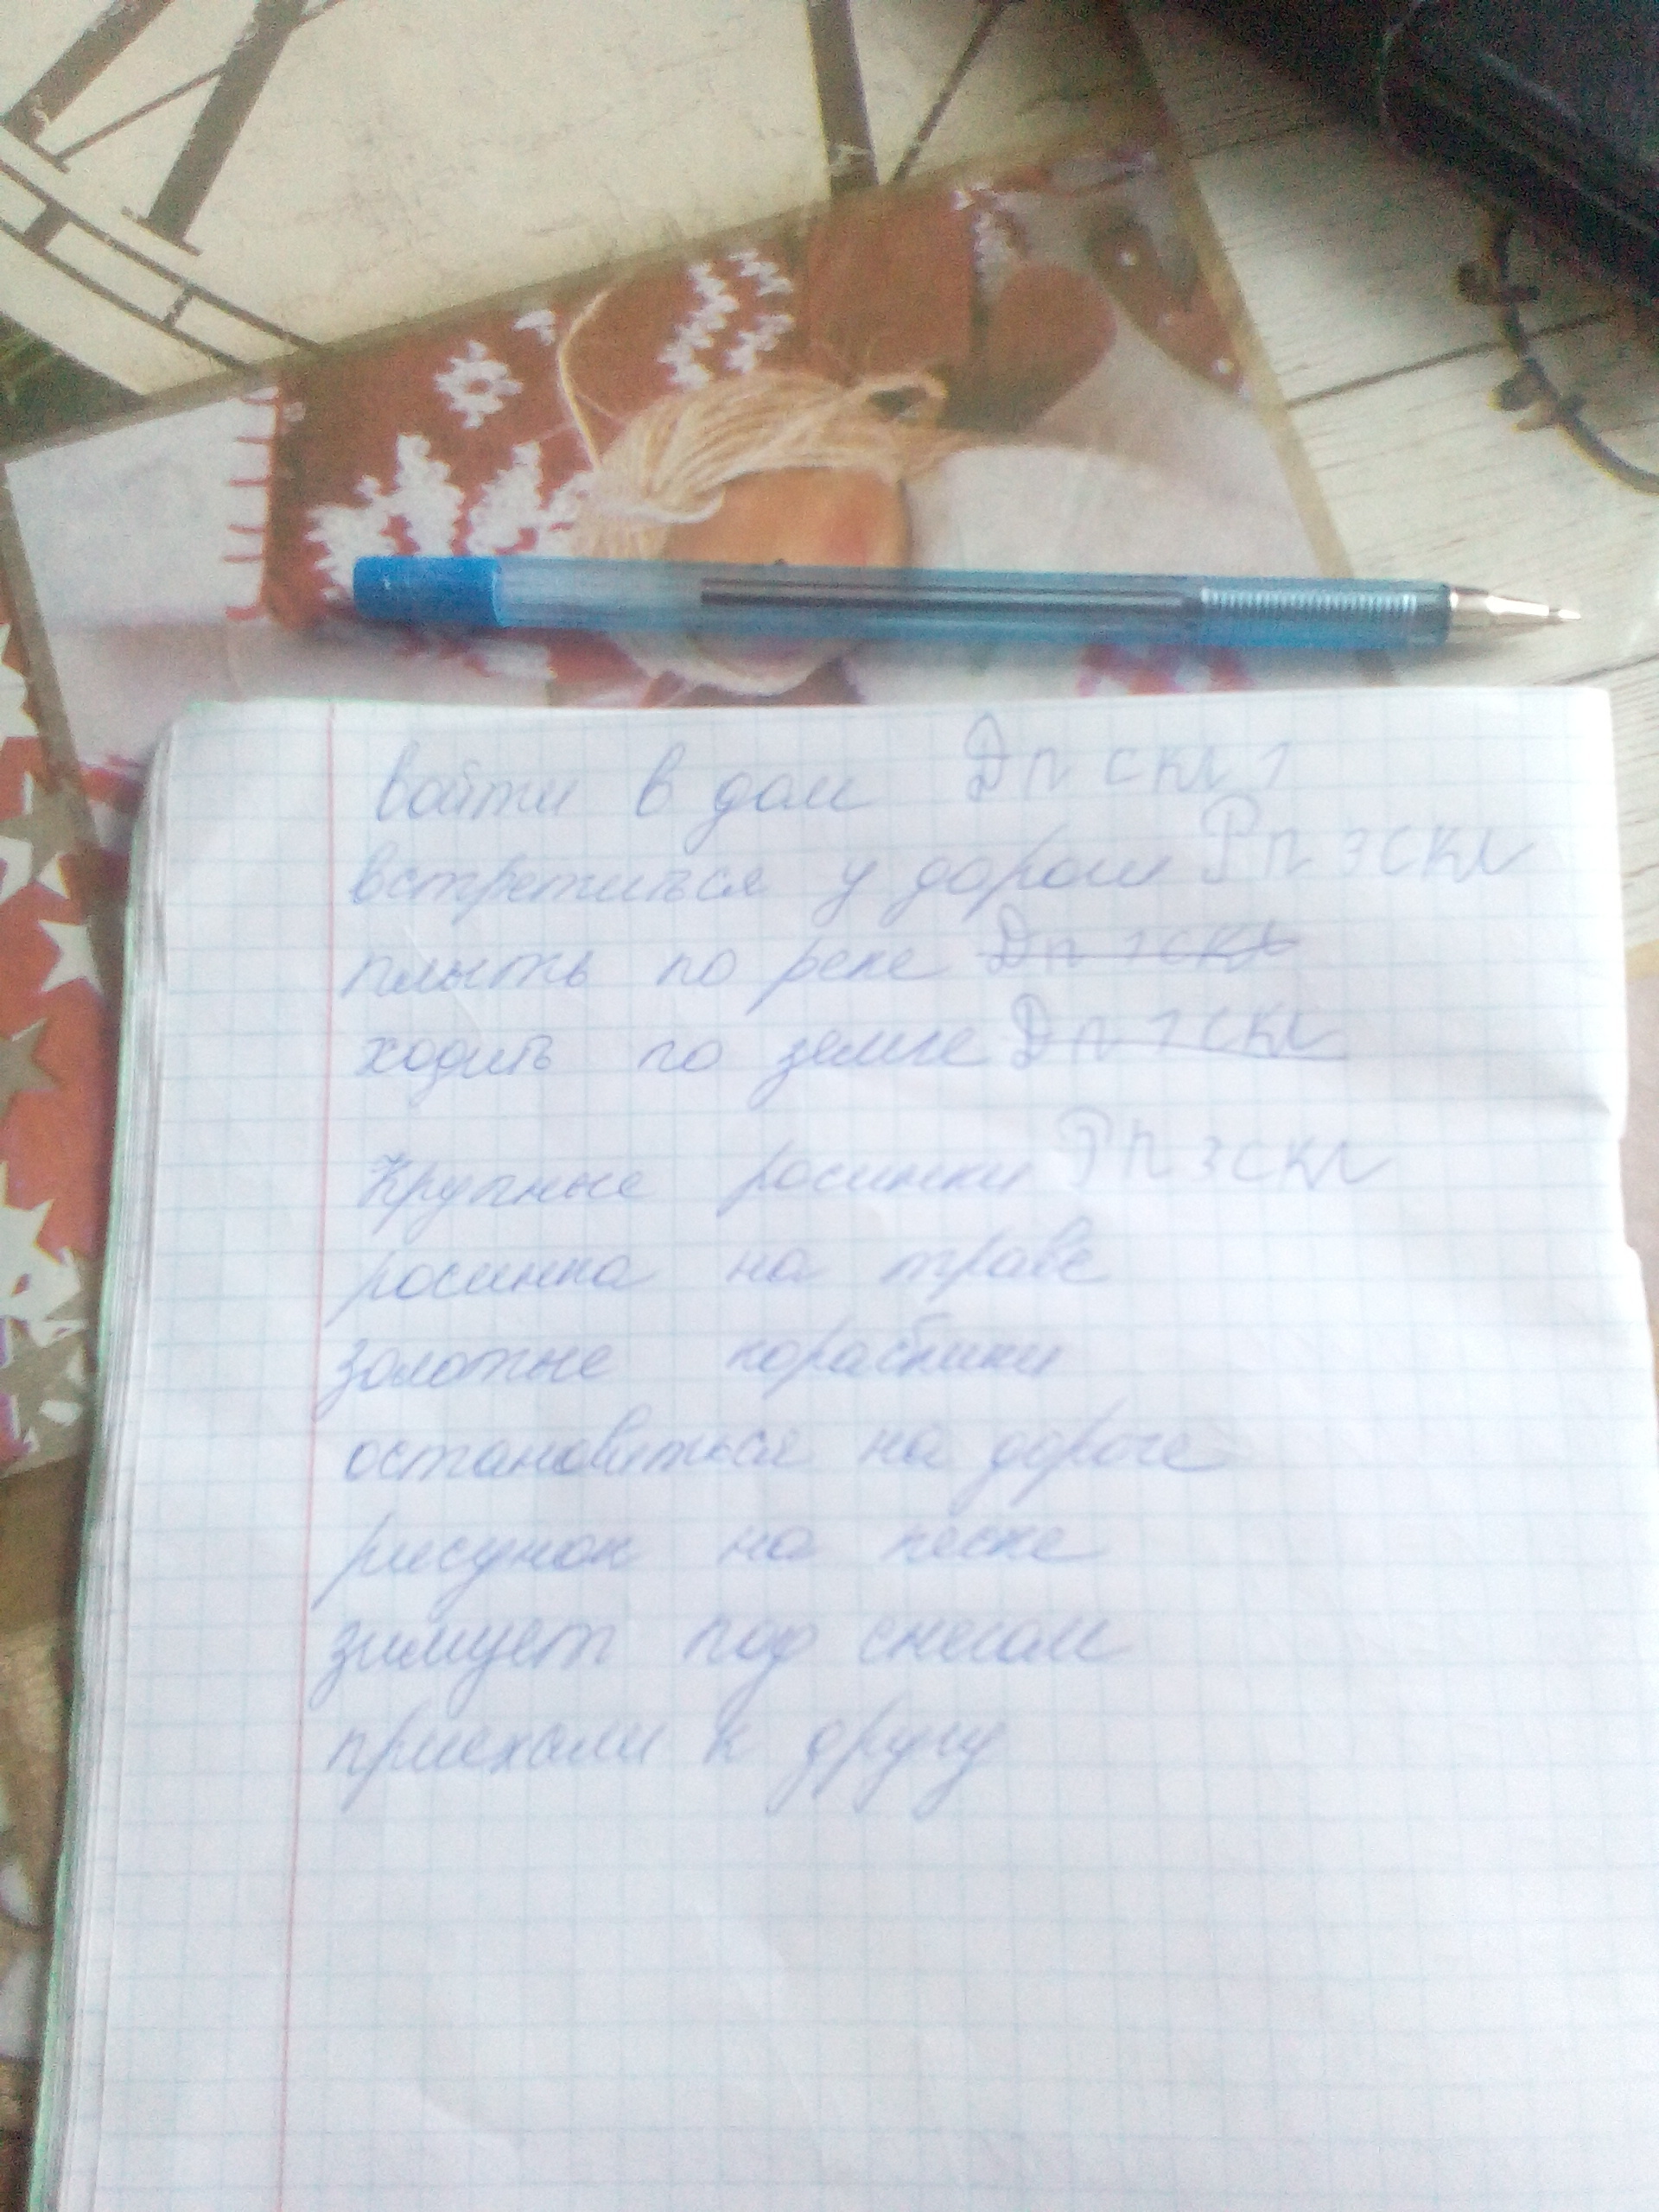 войти в дом Дп скл 1
встретиться у дороги Рп 3 скл
плыть по реке Дп 1 скл
ходить по земле Дп 1 скл
Крупные росинки Рп 3 скл
росинка на траве
золотые кораблики
остановиться на дороге
рисунок на песке
зимует под снегом
приехали к другу